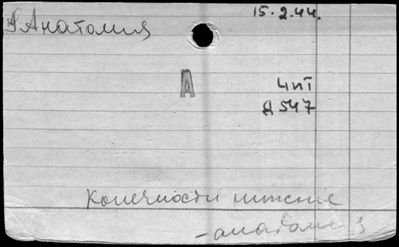 Анатомия
15.2.44.
А
ЧИТ
Д547
Конечности нижние
- анатомия